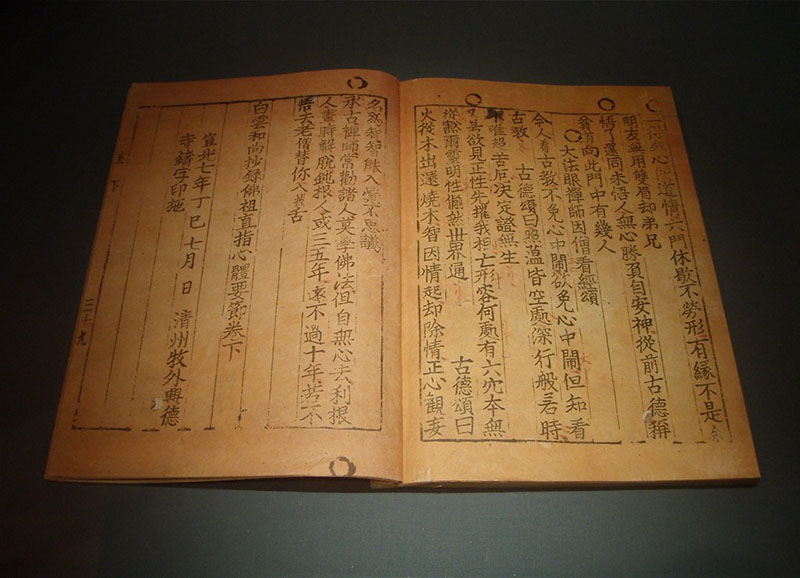 一得無心便道情六門休歇不勞形有緣不是
明友無用雙眉却弟兄
悟了還同未悟人無心勝負自安神從前古德稱
貧道向此門中有幾人
〇大法眼禪師因僧看經頌
今人看古教不免心中鬧欲免心中鬧但知看
古教 古德頌曰照蕰皆空處深行般若時
唯超苦厄決定證無生
若欲見正性先摧我相亡形容何處有六穴本無
從豁爾靈明性 世界通 古德頌曰
火從木出還燒木智因情起却除情正心觀妄
名爲智知 入 不思議
古禪師常勸諸人莫學佛法但自無心去利根
人晝時解脫鈍根人或三五年遠不過十年若不
悟去老僧替你入 舌
白雲和尚抄錄佛祖直指心體要節卷下
宣光七年丁巳七月 日 淸州牧外興德
寺鑄字印施
下
三十九